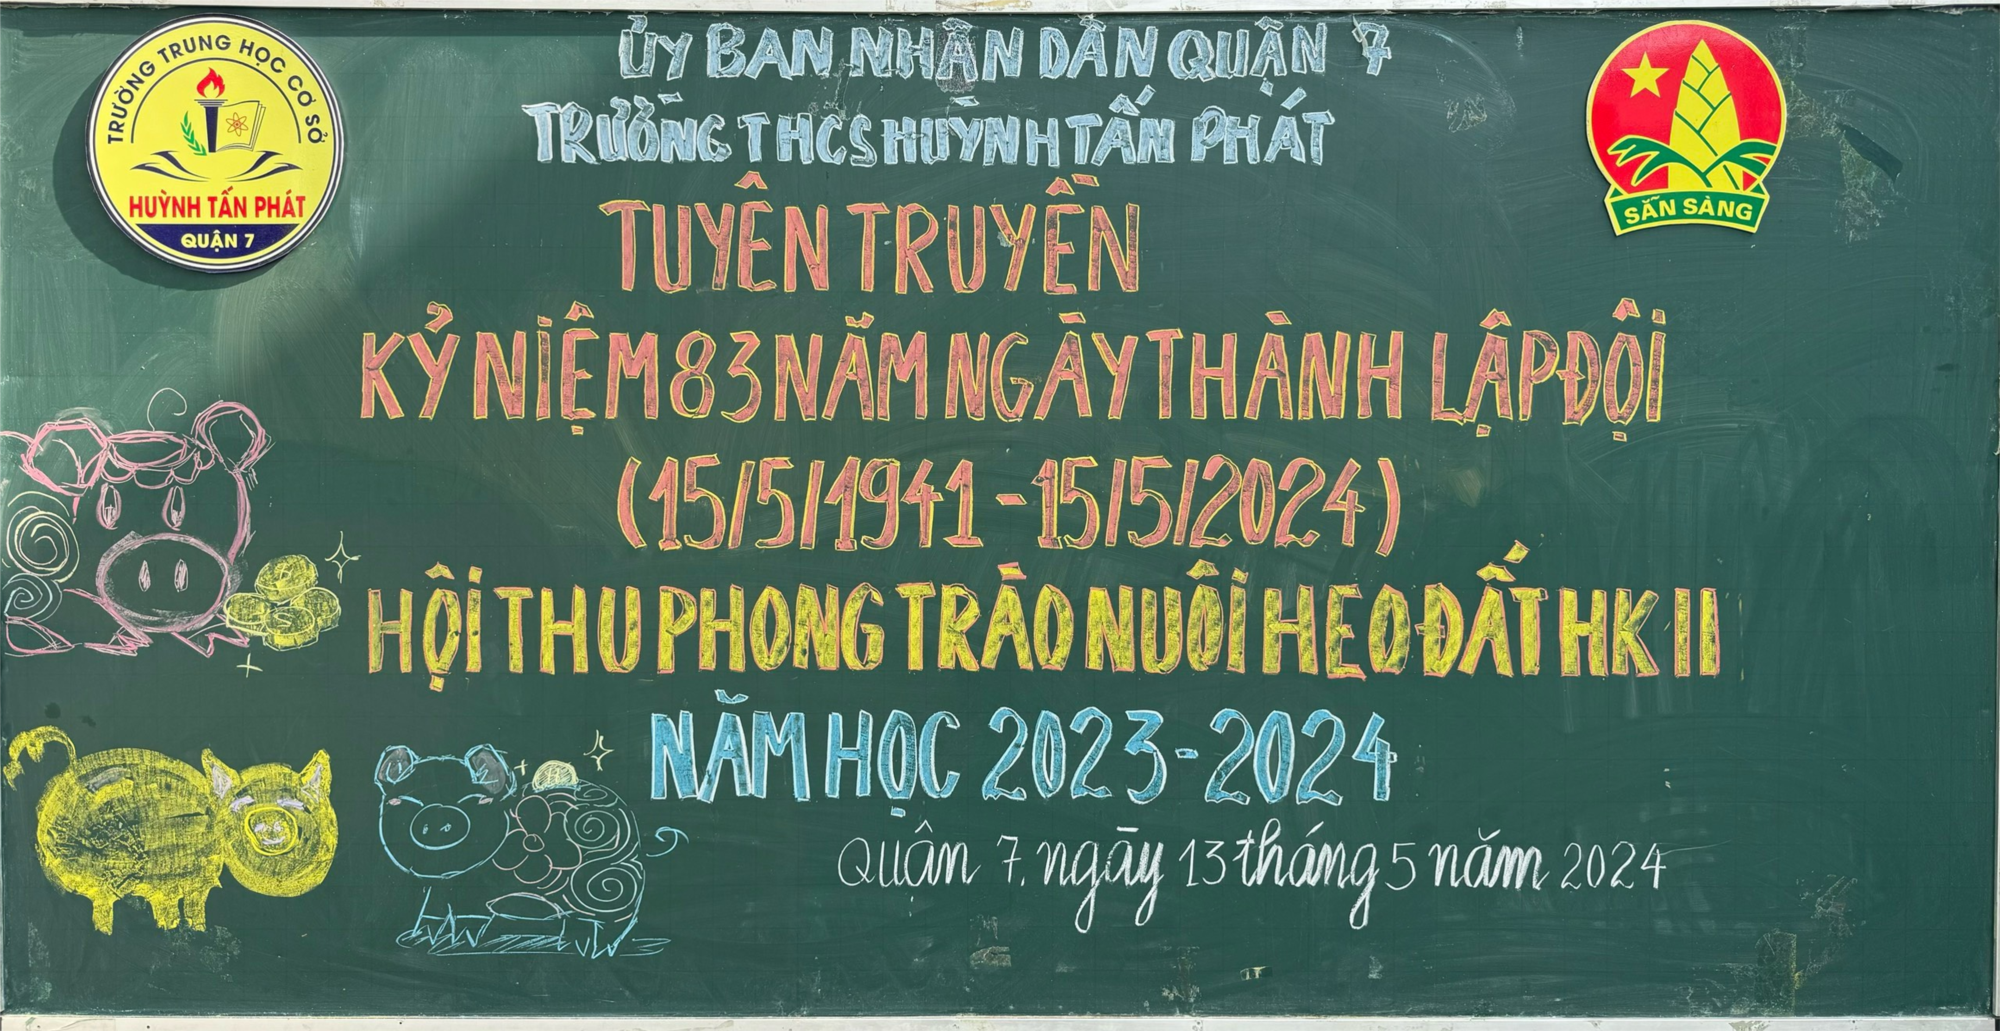 TRƯỜNG TRUNG HỌC CƠ SỞ
HUỲNH TẤN PHÁT
QUẬN 7
SẴN SÀNG
ỦY BAN NHÂN DÂN QUẬN 7
TRƯỜNG THCS HUỲNH TẤN PHÁT
TUYÊN TRUYỀN
KỶ NIỆM 83 NĂM NGÀY THÀNH LẬP ĐỘI
(15/5/1941 - 15/5/2024)
HỘI THU PHONG TRÀO NUÔI HEO ĐẤT HK II
NĂM HỌC 2023-2024
Quân 7, ngày 13 tháng 5 năm 2024